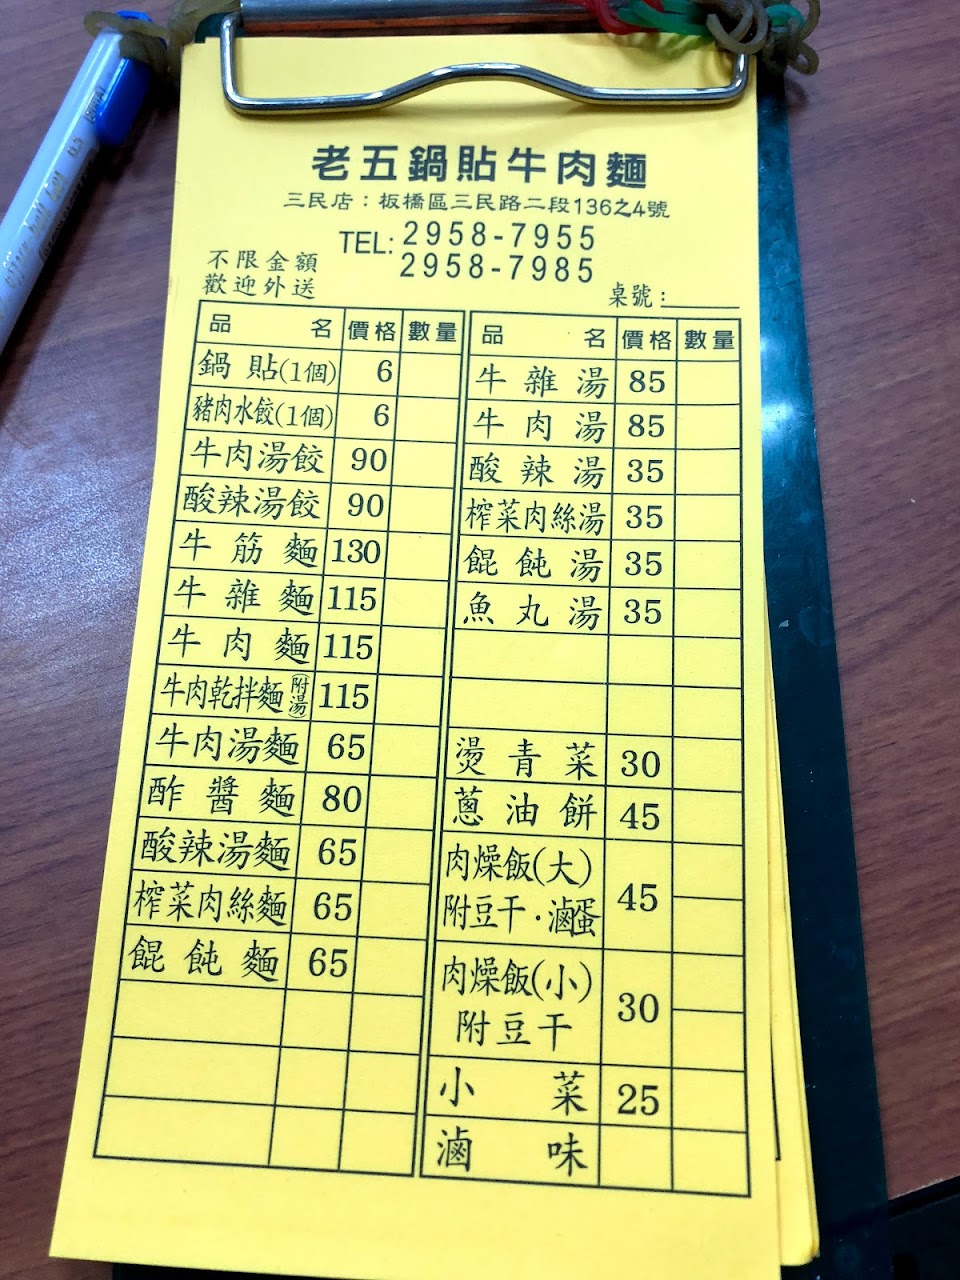 老五鍋貼牛肉麵
三民店：板橋區三民路二段136之4號
TEL: 2958-7955
2958-7985
不限金額
歡迎外送
桌號：
品名 價格 數量
鍋貼(1個) 6
豬肉水餃(1個) 6
牛肉湯餃 90
酸辣湯餃 90
牛筋麵 130
牛雜麵 115
牛肉麵 115
牛肉乾拌麵(附湯) 115
牛肉湯麵 65
酢醬麵 80
酸辣湯麵 65
榨菜肉絲麵 65
餛飩麵 65
品名 價格 數量
牛雜湯 85
牛肉湯 85
酸辣湯 35
榨菜肉絲湯 35
餛飩湯 35
魚丸湯 35
燙青菜 30
蔥油餅 45
肉燥飯(大)
附豆干·滷蛋 45
肉燥飯(小)
附豆干 30
小菜 25
滷味